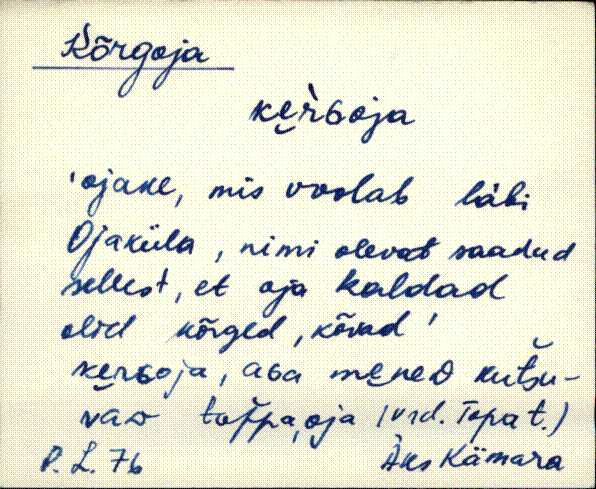 Kõrgoja
ke̮rGoja
'ojake, mis voolab läbi
Ojaküla, nimi olevat saadud
sellest, et oja kaldad
olid kõrged, kõvad'
ke̮rGoja, aGa me̮neD kutšu-
vaD toppa, oja (vrd. Topa t.)
P. L. 76 Aks Kämara